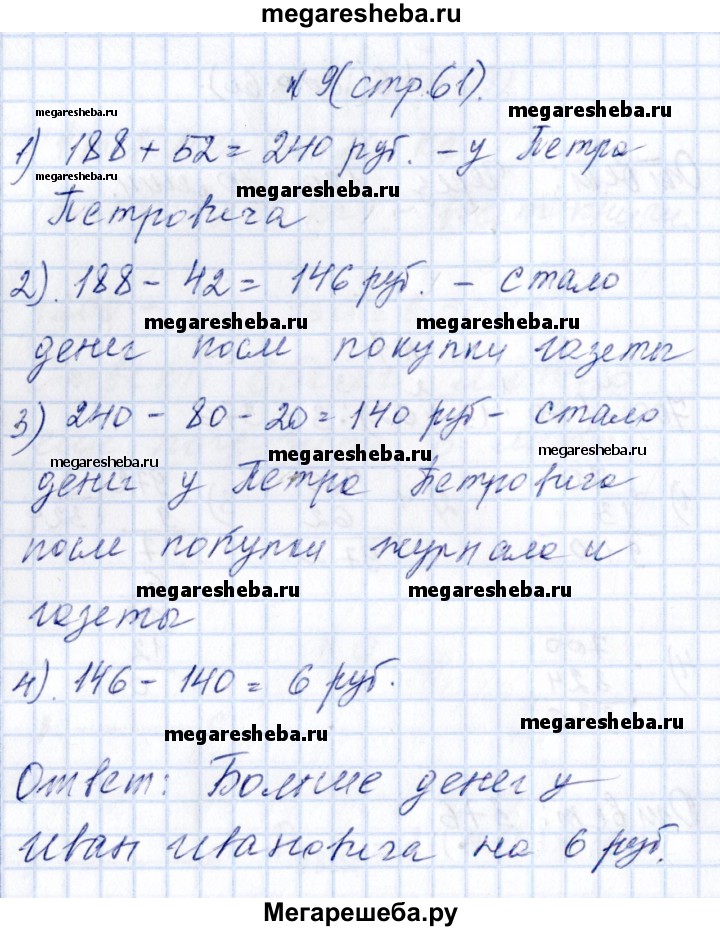 megaresheba.ru
№ 9 (стр. 61).
megaresheba.ru megaresheba.ru
1) 188 + 52 = 240 руб. - у Петра
megaresheba.ru megaresheba.ru
Петровича
2). 188 - 42 = 146 руб. - стало
megaresheba.ru megaresheba.ru
денег после покупки газеты
3) 240 - 80 - 20 = 140 руб - стало
megaresheba.ru megaresheba.ru
денег у Петра Петровича
после покупки журнала и
megaresheba.ru megaresheba.ru
газеты
4). 146 - 140 = 6 руб.
megaresheba.ru megaresheba.ru
Ответ: Больше денег у
Иван Ивановича на 6 руб.
Мегарешеба.ру